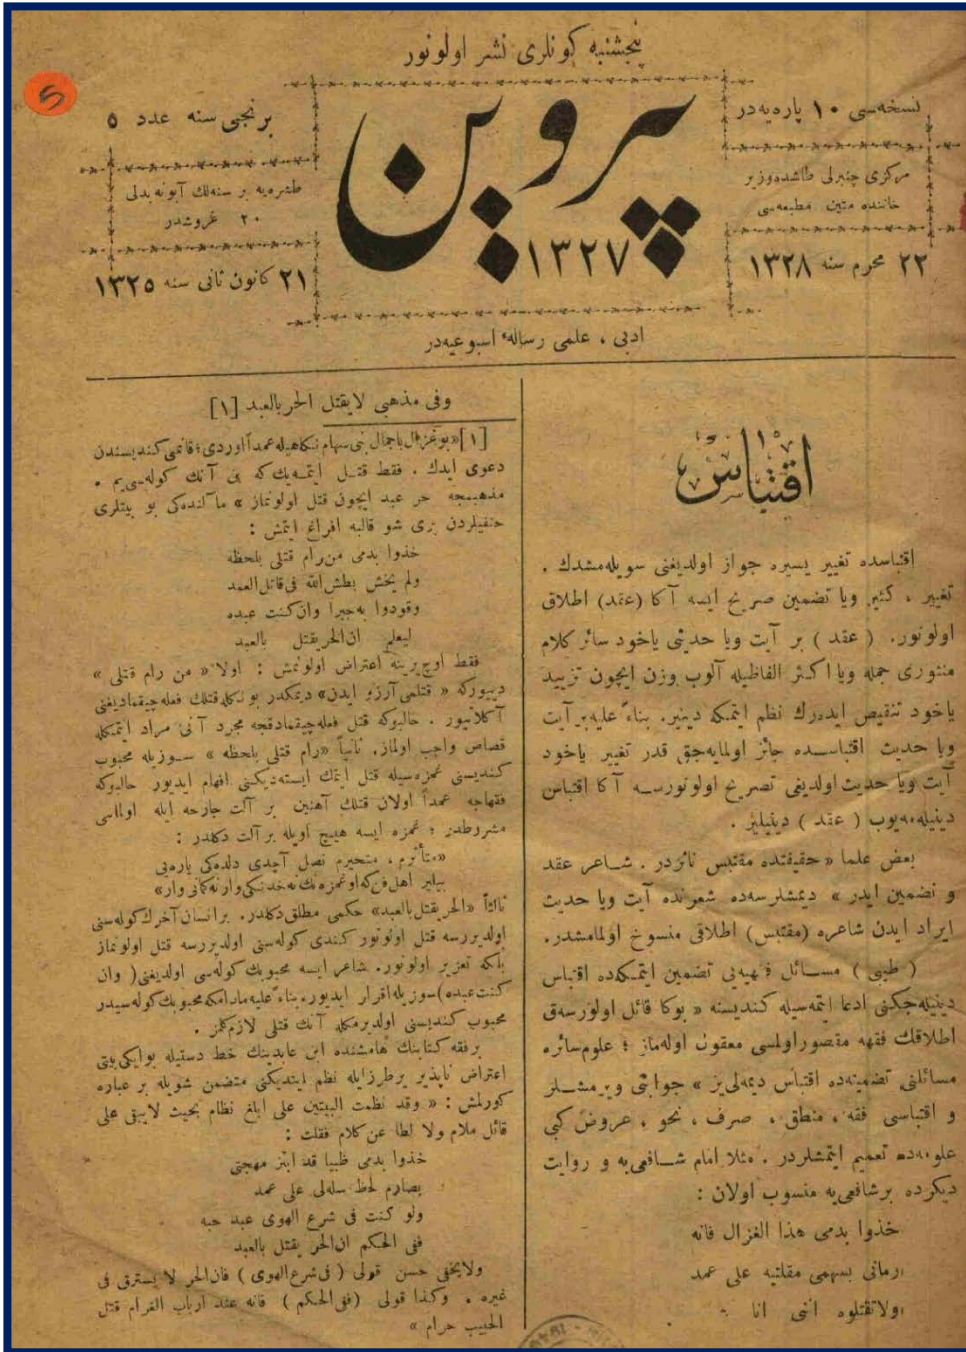 پنجشنبه كونلری نشر اولونور
5
نسخه‌سی ۱۰ پاره‌یه‌در
مركزی چنبرلی طاشده وزیر
خاننده متین مطبعه‌سی
۲۲ محرم سنه ۱۳۲۸
پروین
۱۳۲۷
برنجی سنه عدد ۵
طشره‌یه بر سنه‌لك آبونه بدلی
۲۰ غروشدر
۲۱ كانون ثانی سنه ۱۳۲۵
ادبی ، علمی رسالهٔ اسبوعیه‌در
اقتباس
اقتباسده تغییر یسیره جواز اولدیغنی سویله‌مشدك .
تغییر ، كثیر ویا تضمین صریح ایسه آكا (عقد) اطلاق
اولونور. ( عقد ) بر آیت ویا حدیثی یاخود سائر كلام
منثوری جمله ویا اكثر الفاظیله آلوب وزن ایچون تزیید
یاخود تنقیص ایدرك نظم ایتمكه دینیر. بناءً علیه بر آیت
ویا حدیث اقتباسـده جائز اولمایه‌جق قدر تغییر یاخود
آیت ویا حدیث اولدیغی تصریح اولونورسـه آكا اقتباس
دینیله‌میوب ( عقد ) دینیلیر .
بعض علما « حقیقتده مقتبس ناثردر . شـاعر عقد
و تضمین ایدر » دیمشلرسه‌ده شعرنده آیت ویا حدیث
ایراد ایدن شاعره (مقتبس) اطلاقی منسوخ اولمامشدر.
( طیبی ) مسـائل فقهیه‌یی تضمین ایتمكده اقتباس
دینیله‌جكنی ادعا ایتمه‌سیله كندیسنه « بوكا قائل اولورسه‌ق
اطلاقك فقهه مقصور اولمسی معقول اوله‌ماز ؛ علوم سائره
مسائلنی تضمینه‌ده اقتباس دیمه‌لی‌یز » جوابنی ویرمشـلر
و اقتباسی فقه ، منطق ، صرف ، نحو ، عروض كبی
علومه‌ده تعمیم ایتمشلردر . مثلا امام شـافعی‌یه و روایت
دیكرده برشافعی‌یه منسوب اولان :
خذوا بدمی هذا الغزال فانه
رمانی بسهمی مقلتیه علی عمد
ولاتقتلوه اننی انا
وفی مذهبی لایقتل الحر بالعبد [۱]
[۱] «بو غزال باجمال بنی سهام نكاهیله عمداً اوردی؛ قانمی كندیسندن
دعوی ایدك . فقط قتـل ایتمـه‌یك كه بن آنك كوله‌سی‌یم .
مذهبمجه حر عبد ایچون قتل اولونماز » مآلنده‌كی بو بیتلری
حنفیلردن بری شو قالبه افراغ ایتمش :
خذوا بدمی من رام قتلی بلحظه
ولم یخش بطش الله فی قاتل العمد
وقودوا به جبرا وان كنت عبده
لیعلم ان الحر یقتل بالعبد
فقط اوچ یرینه اعتراض اولونمش : اولا « من رام قتلی »
دییوركه « قتلمی آرزو ایدن» دیمكدر بو ایسه قتلك فعله چیقمادیغنی
آكلاتیور . حالبوكه قتل فعله چیقمادقجه مجرد آنی مراد ایتمكله
قصاص واجب اولماز. ثانیاً «رام قتلی بلحظه » سـوزیله محبوب
كندیسنی غمزه‌سیله قتل ایتمك ایسته‌دیكنی افهام ایدیور حالبوكه
فقهاجه عمداً اولان قتلك آهنین بر آلت جارحه ایله اولماسی
مشروطدر ؛ غمزه ایسه هیچ اویله بر آلت دكلدر :
«متأثرم ، متحیرم نصل آچدی دلده‌كی یاره‌یی
بیلیر اهل فن كه او غمزه‌نك نه خدنكی وار نه كمانی وار»
ثالثاً «الحر یقتل بالعبد» حكمی مطلق دكلدر. بر انسان آخرك كوله‌سنی
اولدیررسه قتل اولونور كندی كوله‌سنی اولدیررسه قتل اولونماز
بلكه تعزیر اولونور. شاعر ایسه محبوبك كوله‌سی اولدیغنی( وان
كنت عبده) سوزیله اقرار ایدیور. بناءً علیه مادامكه محبوبك كوله‌سیدر
محبوب كندیسنی اولدیرمكله آنك قتلی لازم كلمز .
بر فقه كتابنك هامشنده ابن عابدینك خط دستیله بو ایكی بیتی
اعتراض ناپذیر بر طرز ایله نظم ایتدیكنی متضمن شویله بر عباره
كورلمش : « وقد نظمت البیتین علی ابلغ نظام بحیث لایبقی علی
قائل ملام ولا لطا عن كلام فقلت :
خذوا بدمی ظبیا قد ابتز مهجتی
بصارم لحظ سله لی علی عمد
ولو كنت فی شرع الهوی عبد حبه
ففی الحكم ان الحر یقتل بالعبد
ولایخفی حسن قولی ( فی شرع الهوی ) فان الحر لا یسترق فی
غیره . وكذا قولی (ففی الحكم ) فانه عند ارباب الغرام قتل
الحبیب حرام »